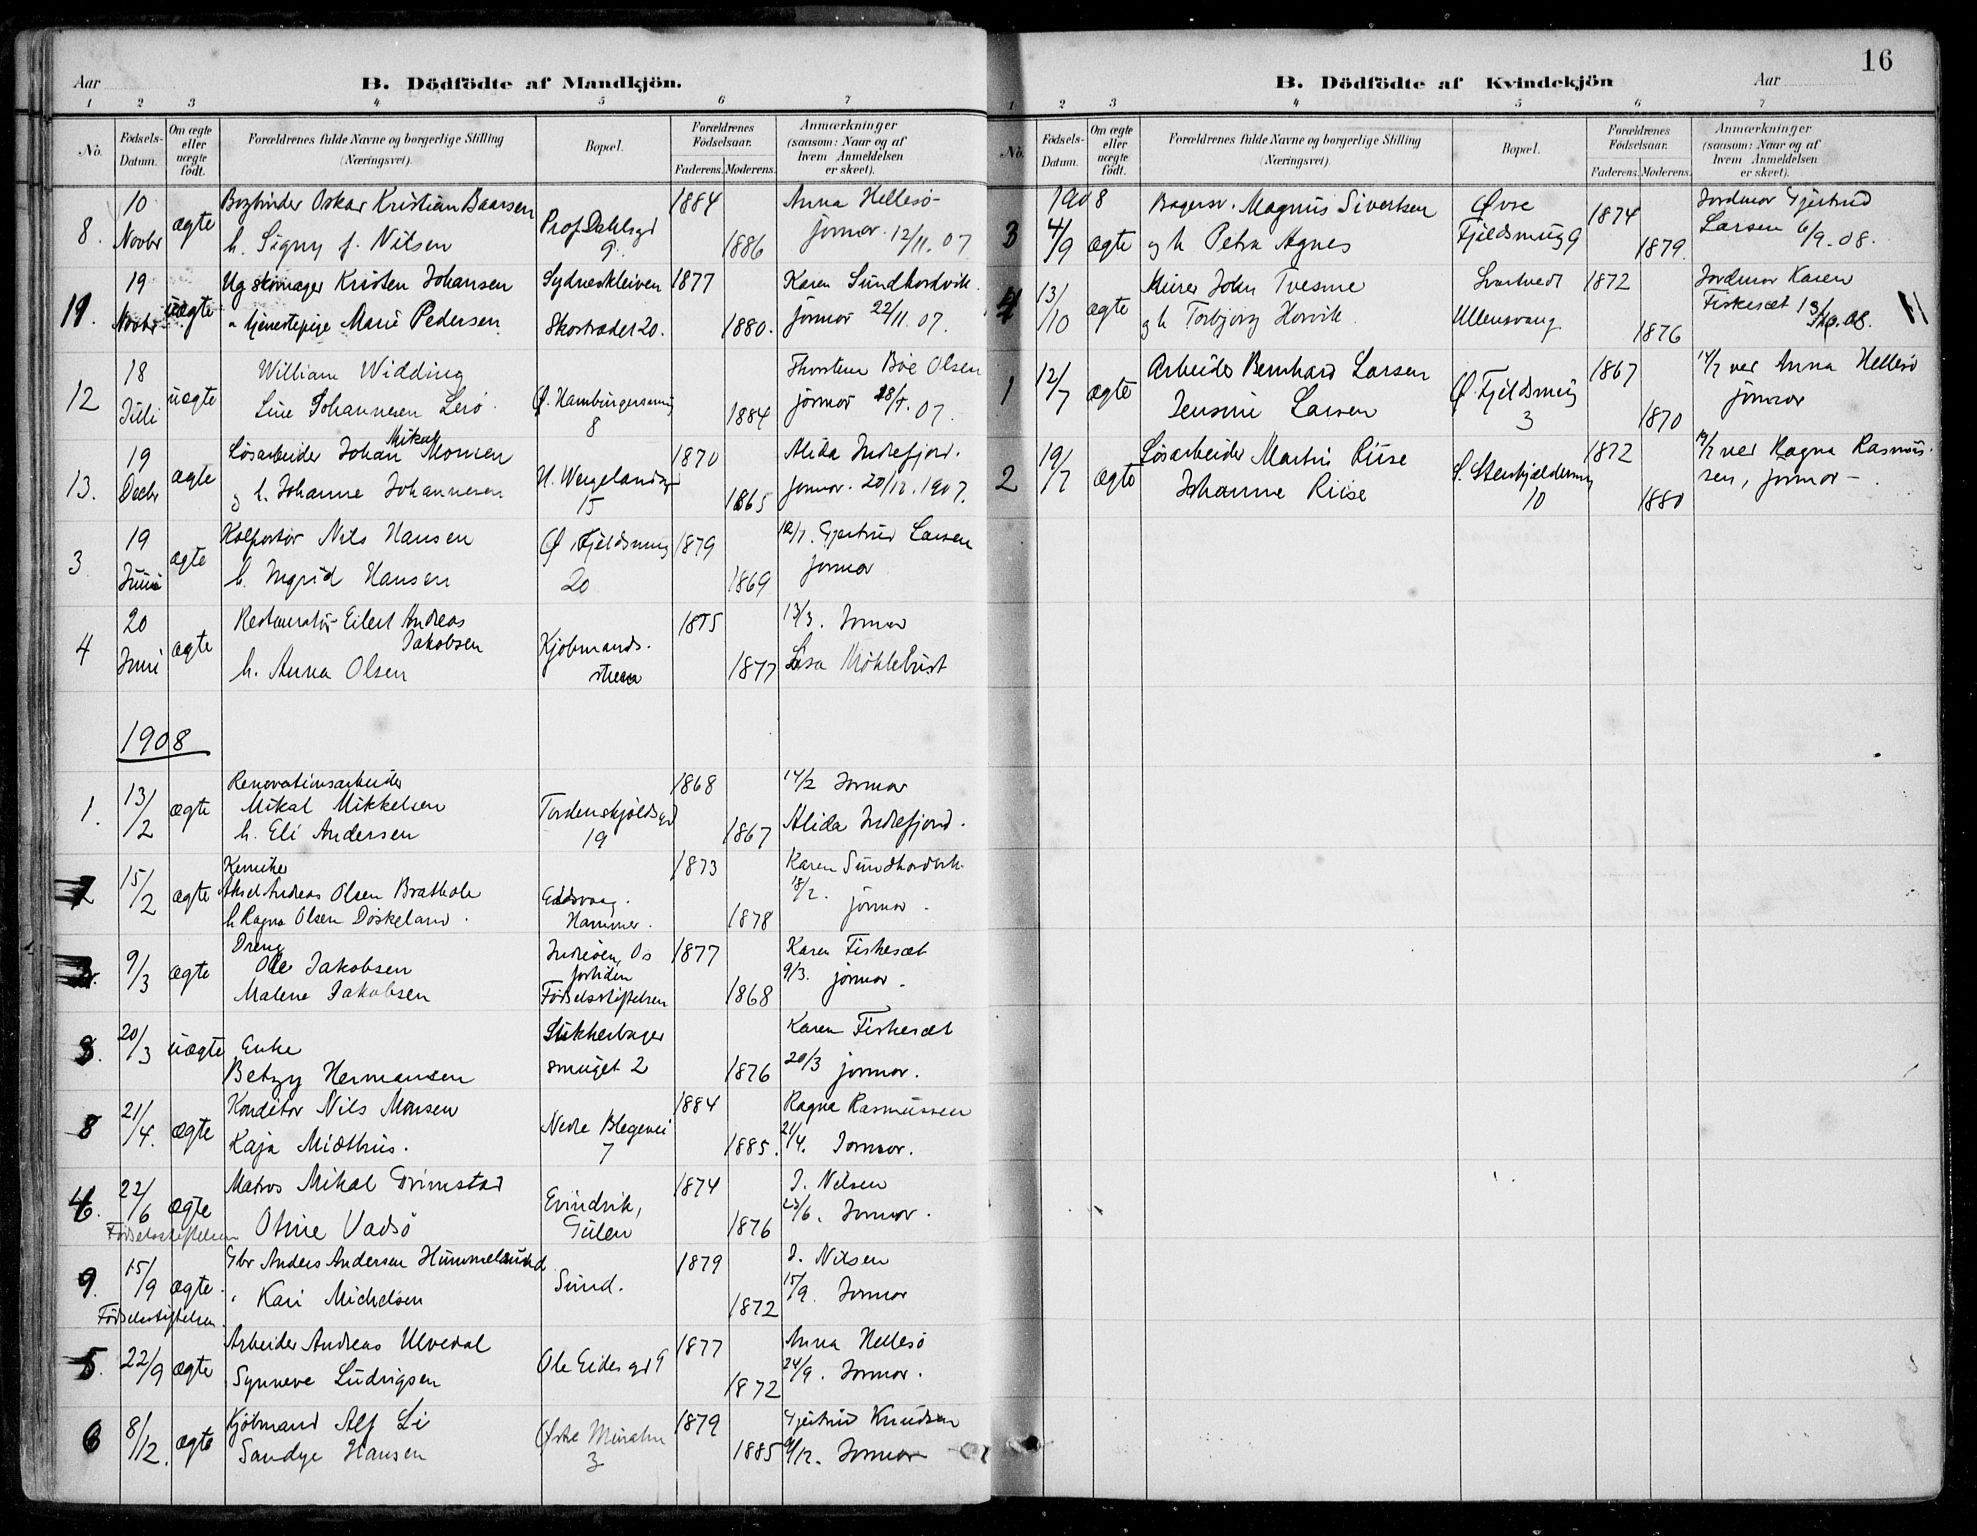 Aar
B. Dödfödte af Mandkjön.
1 2 3 4 5 6 7
No.
Födsels-Datum.
Om ægte eller uægte födt.
Forældrenes fulde Navne og borgerlige Stilling (Næringsvei).
Bopæl.
Forældrenes Födselsaar.
Faderens. Moderens.
Anmærkninger (saasom: Naar og af hvem Anmeldelsen er skeet).
10 Bogbinder Oskar Kristian Baarsen 1884 Anna Hellesö
8. Novbr ægte h. Signy f. Nilsen Prof Dahlsgd 9. 1886 jormor. 12/11. 07
19 Ug skomager Kristen Johansen Sydneskleiven 1877 Karen Sundhordvik
11. Novbr uægte " tjenestepige Marie Pedersen Skostrædet 20. 1880. jormor 22/11. 07.
18 William Widding Thorstena Böe Olsen
12 Juli uægte Line Johannesen Lerö. Ø. Hamburgersmug 8 1884 jormor 07.
19 Løsarbeider Johan Mikal Monsen 1870 Alida Indrefjord.
13. Decbr ægte g h. Johanne Johannesen H. Wergelandsgd 15 1865 jormor. 20/12. 1907.
19 Kolportör Nils Hansen Ø. Fjeldsmug 1879 12/7. Gjertrud Larsen
3. Juni ægte h. Ingrid Hansen 20 1869 Jormor
20 Restauratör Eilert Andreas Jakobsen 1875 13/3. Jormor
4 Juni ægte h. Anna Olsen Kjöbmands. 1877 Lisa Möklebust
1908
Renovationsarbeider 1868 14/2 Jormor
1. 13/2 ægte Mikal Mikkelsen Tordenskjöldsgd
h. Eli Andersen 19 1867 Alida Indrefjord.
Kemiker 1873 Karen Sundhordvik
15/2 ægte Aksel Andreas Olsen Brathole Eidsvaag. 18/2. jormor.
h. Ragna Olsen Döskeland. Hammer. 1878
Dreng Indreöen, Os 1877 Karen Fiskesæt
9/3 ægte Ole Jakobsen fortiden 9/3. jormor.
Malene Jakobsen Födselsstiftelsen 1868
20/3 uægte Enke Sukkerbager Karen Fiskesæt
3. Betzy Hermansen smuget 2 1876 20/3 jormor.
21/4. Konditor Nils Monsen 1884 Ragna Rasmussen
8 ægte Kaja Midthus. Nedre Blegevei 7 1885. 21/4. Jormor.
22/6 Matros Mikal Grimstad Evindvik, 1874 J. Nilsen
ægte Oline Vadsö Gulen 1876 23/6. Jormor.
Födselsstiftelsen
15/9 Gbr Anders Andersen Hummelsund 1879 J. Nilsen
9. ægte. " Kari Michelsen Sund. 1872 15/9. Jormor
Födselsstiftelsen.
Arbeider Andreas Ulvedal 1877 Anna Hellesö
5. 22/9 ægte Synneve Ludvigsen Ole Eides gd 9 1872 24/9. Jormor.
Kjöbmand Alf Li 1879 Gjertrud Knudsen
6 8/12. ægte Hansen 3 1885 9/12. Jormor
16
B. Dödfödte af Kvindekjön
Aar
1 2 3 4 5 6 7
No.
Födsels-Datum.
Om ægte eller uægte födt.
Forældrenes fulde Navne og borgerlige Stilling (Næringsvei).
Bopæl.
Forældrenes Födselsaar.
Faderens. Moderens.
Anmærkninger (saasom: Naar og af hvem Anmeldelsen er skeet).
1908 Bagersv. Magnus Sivertsen Øvre 1874 Jordmor Gjertrud
3 4/9 ægte og h Petra Agnes Fjeldsmug 9 1879. Larsen 6/9. 08.
Murer John Tvesme 1872 Jordmor Karen
4 13/10 ægte og h Torbjorg Horvik Ullensvang 1876 Fiskesæt 13/10. 08.
Arbeider Bernhard Larsen 1867 14/7 ver Anna Hellesö
1 12/7 ægte Jensine Larsen Ø. Fjeldsmug 3 1870 jormor
Løsarbeider Martin Riise 1872 19/7 ver Ragna Rasmus-
2 19/7 ægte Johanne Riise S. Stenkjældermug 10 1880 sen, jormor –